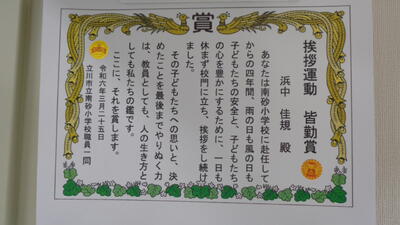 賞
挨拶運動 皆勤賞
浜中 佳規 殿
あなたは南砂小学校に赴任して
からの四年間、雨の日も風の日も
子どもたちの安全と、子どもたち
の心を豊かにするために、一日も
休まず校門に立ち、挨拶をし続け
ました。
その子どもたちへの思いと、決
めたことを最後までやりぬく力
は、教員としても、人の生き方と
しても私たちの鑑です。
ここに、それを賞します。
令和六年三月二十五日
立川市立南砂小学校職員一同